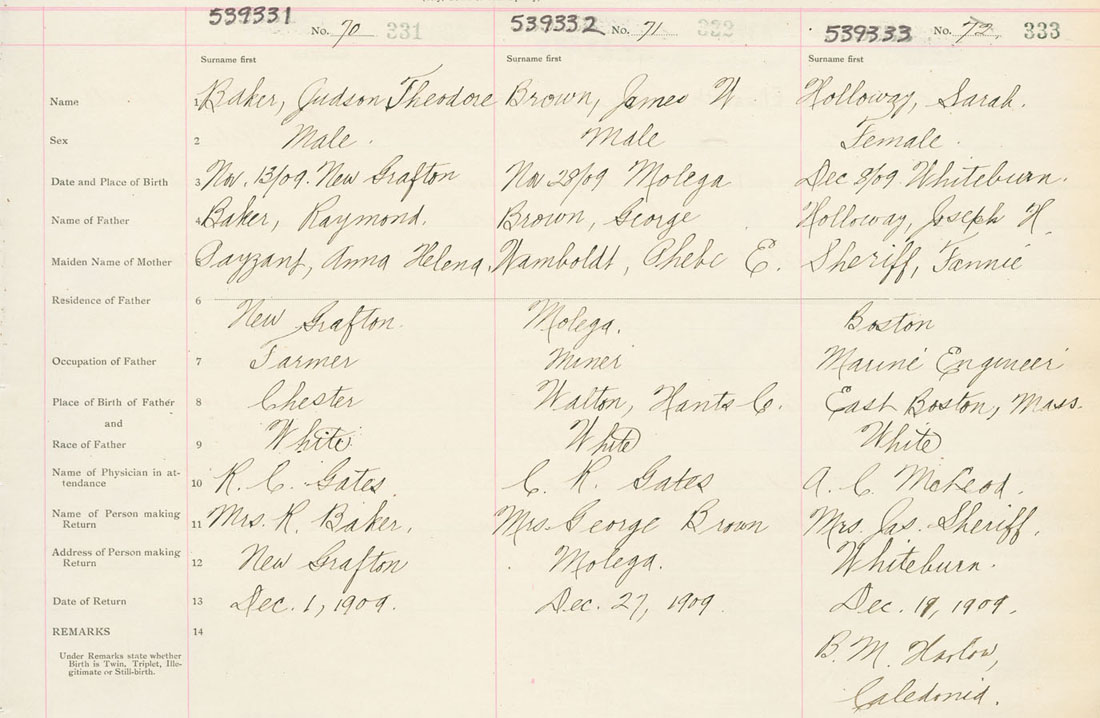 539331 No. 70 331 539332 No. 71 332 539333 No. 72 333
Surname first Surname first Surname first
Name 1 Baker, Judson Theodore Brown, James W. Holloway, Sarah.
Sex 2 Male. Male Female.
Date and Place of Birth 3 Nov. 13/09. New Grafton Nov 28/09 Molega Dec 8/09. Whiteburn.
Name of Father 4 Baker, Raymond. Brown, George Holloway, Joseph H.
Maiden Name of Mother 5 Payzant, Anna Helena. Wamboldt, Phebe E. Sheriff, Fannie
Residence of Father 6
New Grafton. Molega. Boston
Occupation of Father 7 Farmer Miner Marine Engineer
Place of Birth of Father 8 Chester Walton, Hants C. East Boston, Mass.
and
Race of Father 9 White White White
Name of Physician in at-
tendance 10 R. C. Gates. C. R. Gates A. C. McLeod.
Name of Person making
Return 11 Mrs. R. Baker. Mrs. George Brown Mrs. Jas. Sheriff.
Address of Person making
Return 12 New Grafton Molega. Whiteburn.
Date of Return 13 Dec. 1, 1909. Dec. 27, 1909 Dec. 19, 1909.
REMARKS 14
Under Remarks state whether
Birth is Twin, Triplet, Ille-
gitimate or Still-birth.
B. M. Harlow,
Caledonia.